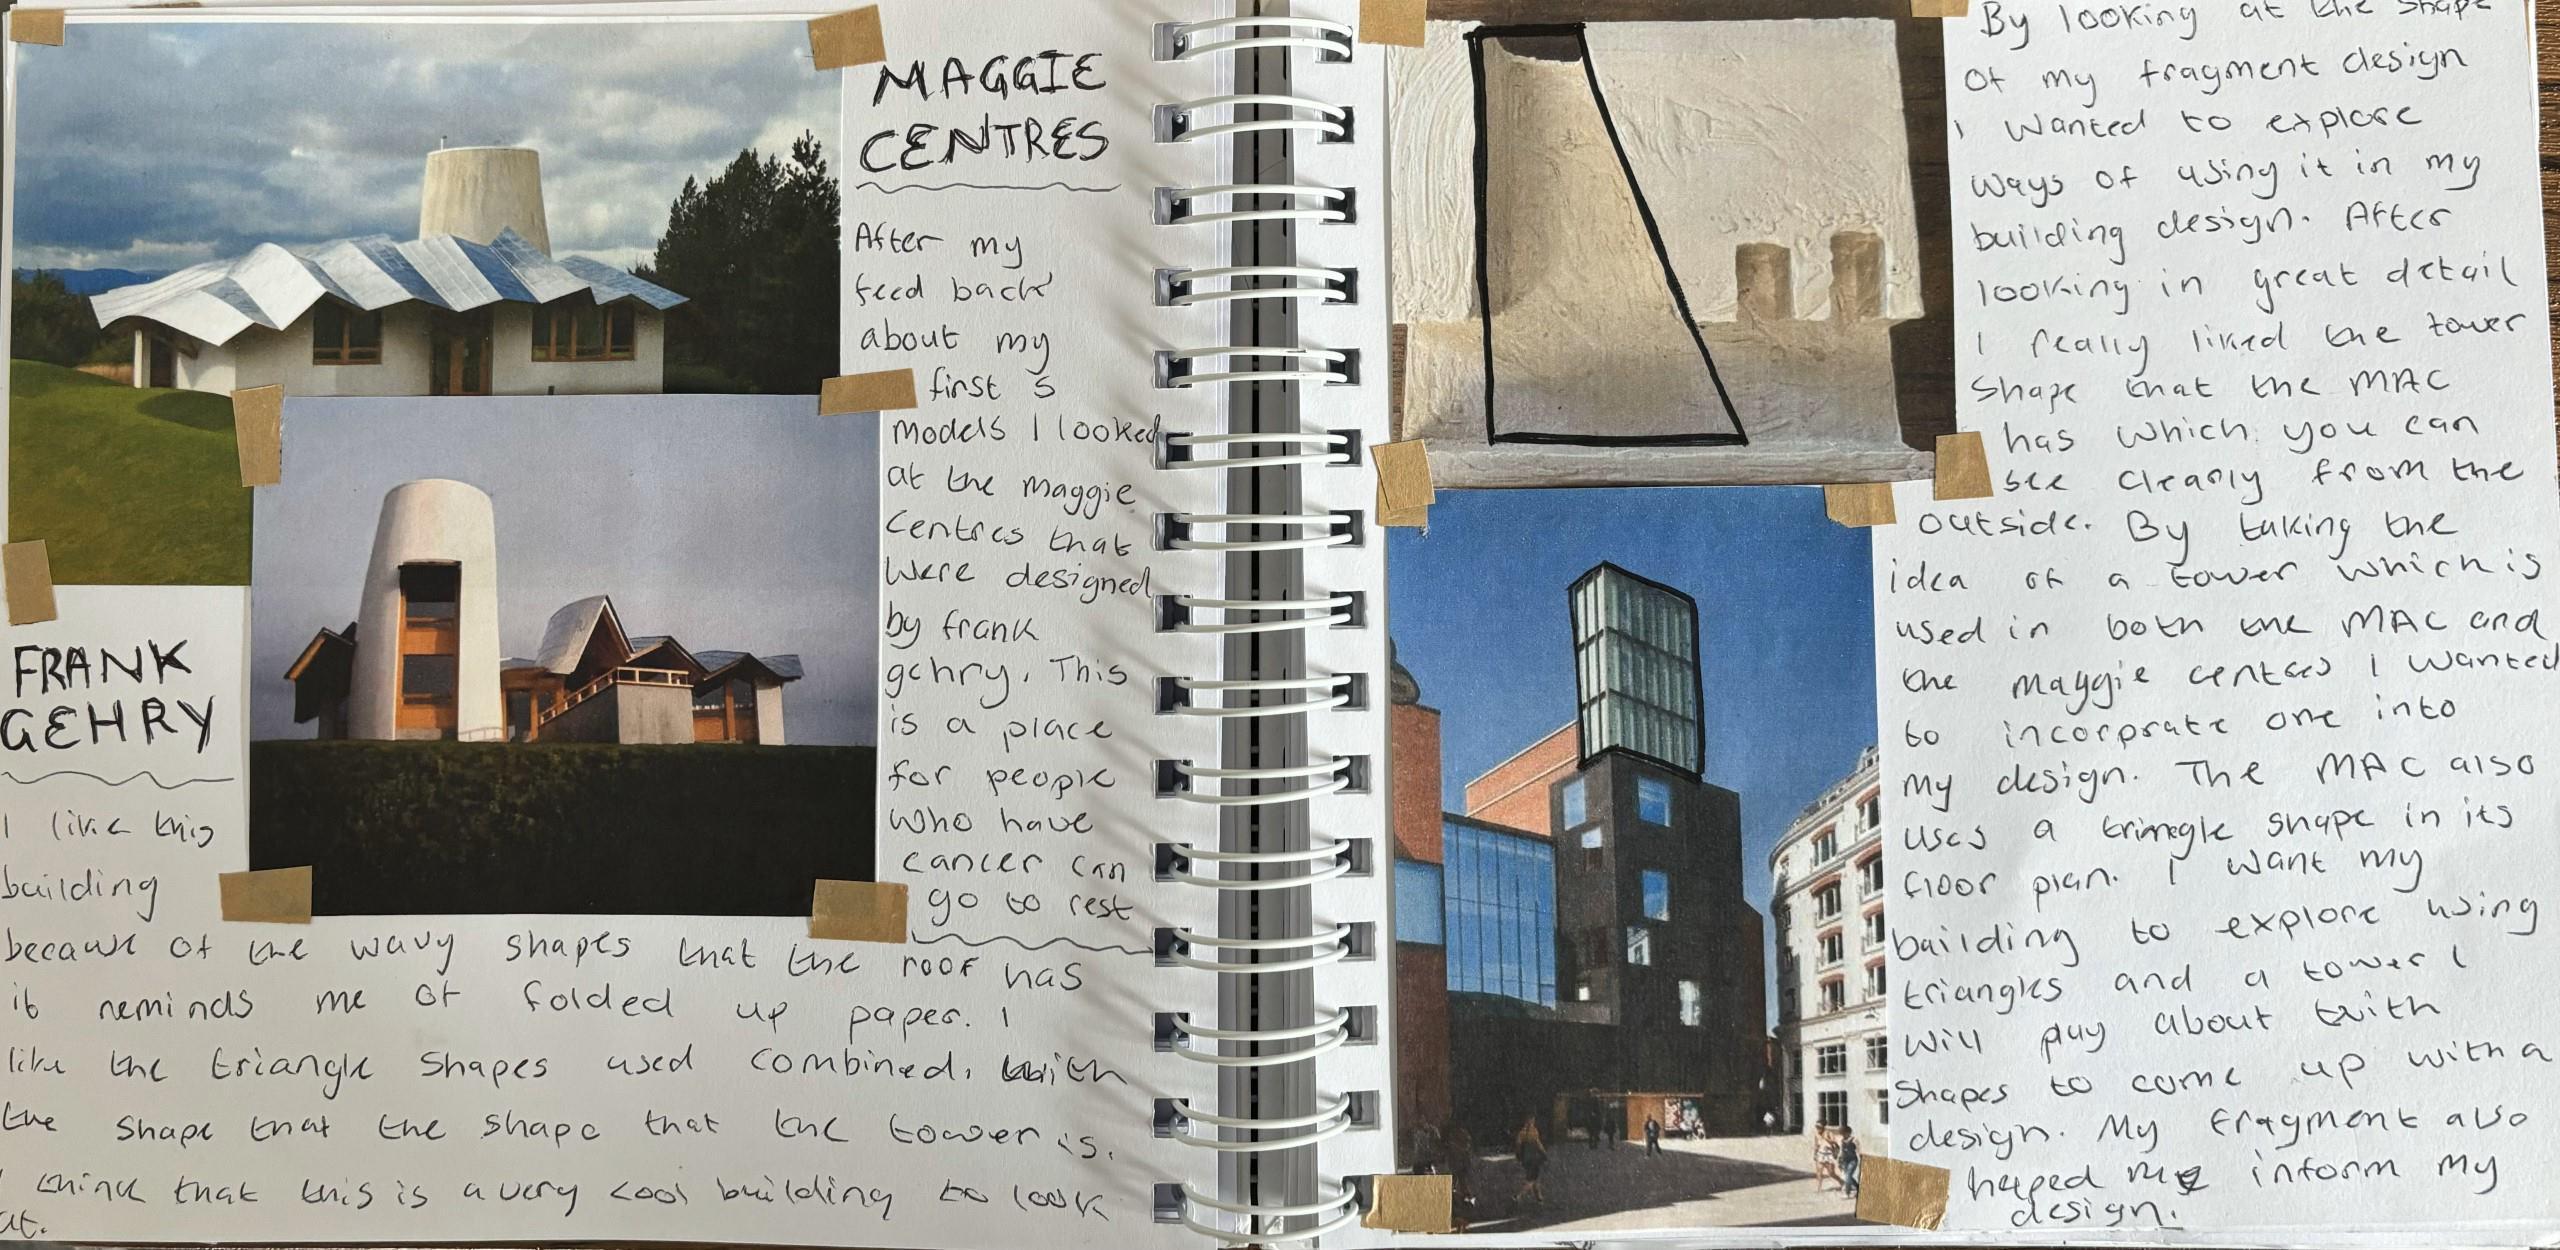 MAGGIE
CENTRES
After my
feed back
about my
first 5
models I looked
at the maggie
centres that
were designed
by frank
gehry. This
is a place
for people
who have
cancer can
go to rest
FRANK
GEHRY
I like this
building
because of the wavy shapes that the roof has
it reminds me of folded up paper. I
like the triangle shapes used combined, with
the shape that the shape that the tower is.
I think that this is a very cool building to look
at.
By looking at the shape
of my fragment design
i wanted to explore
ways of using it in my
building design. After
looking in great detail
I really liked the tower
shape that the MAC
has which you can
see clearly from the
outside. By taking the
idea of a tower which is
used in both the MAC and
the maggie centres I wanted
to incorprate one into
my design. The MAC also
uses a triangle shape in its
floor plan. I want my
building to explore using
triangles and a tower I
will play about with
shapes to come up with a
design. My fragment also
helped me inform my
design.